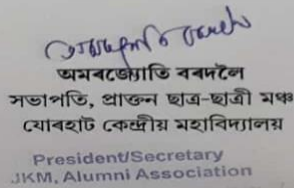 অমৰজ্যোতি বৰদলৈ
সভাপতি, প্ৰাক্তন ছাত্ৰ-ছাত্ৰী মঞ্চ
যোৰহাট কেন্দ্ৰীয় মহাবিদ্যালয়
President/Secretary
JKM, Alumni Association